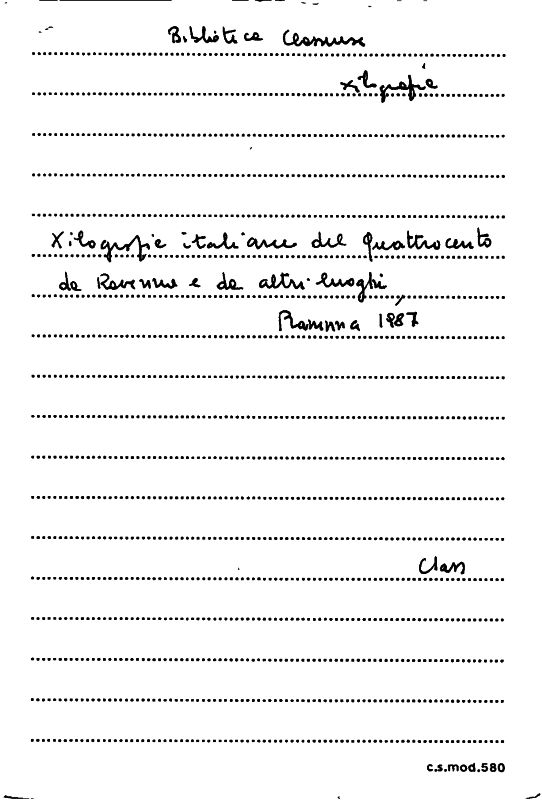 Biblioteca Classense
Xilografia
Xilografie italiane del Quattrocento
da Ravenna e da altri luoghi
Ravenna 1987
Class
c.s.mod.580